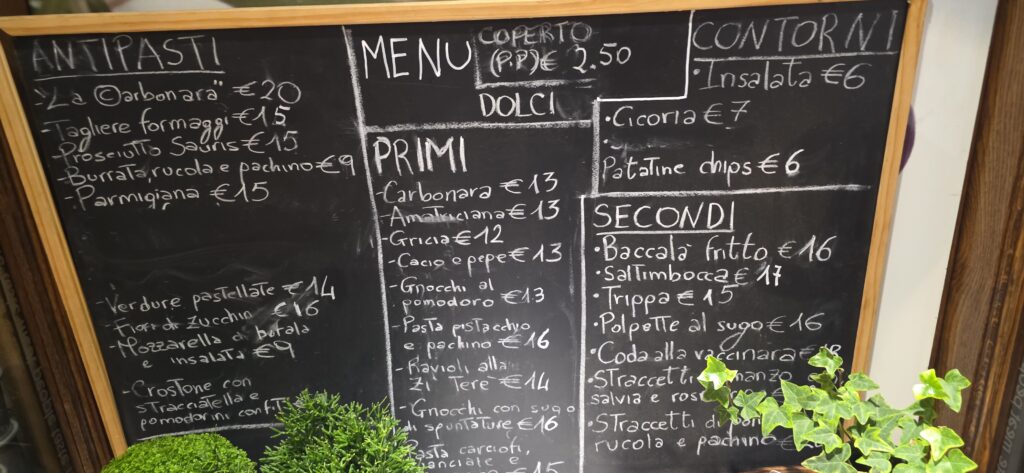 ANTIPASTI
"La ©arbonara" €20
-Tagliere formaggi €15
-Prosciutto Sauris €15
-Burrata, rucola e pachino €9
-Parmigiana €15
-Verdure pastellate €14
-Fiori di zucchin €16
-Mozzarella di bufala
e insalata €9
-Crostone con
stracciatella e
pomodorini confit
MENU
COPERTO
(P.P) € 2.50
DOLCI
PRIMI
-Carbonara €13
-Amatriciana €13
-Gricia €12
-Cacio e pepe €13
-Gnocchi al
pomodoro €13
-Pasta pistacchio
e pachino €16
-Ravioli alla
Zi' Tere €14
-Gnocchi con sugo
di spuntature €16
-Pasta carciofi,
e
€15
CONTORNI
•Insalata €6
•Cicoria €7
•
Patatine chips €6
SECONDI
•Baccalà fritto €16
•Saltimbocca €17
•Trippa €15
•Polpette al sugo €16
•Coda alla vaccinara €18
•Straccetti
salvia e
•Straccetti di
rucola e pachino €